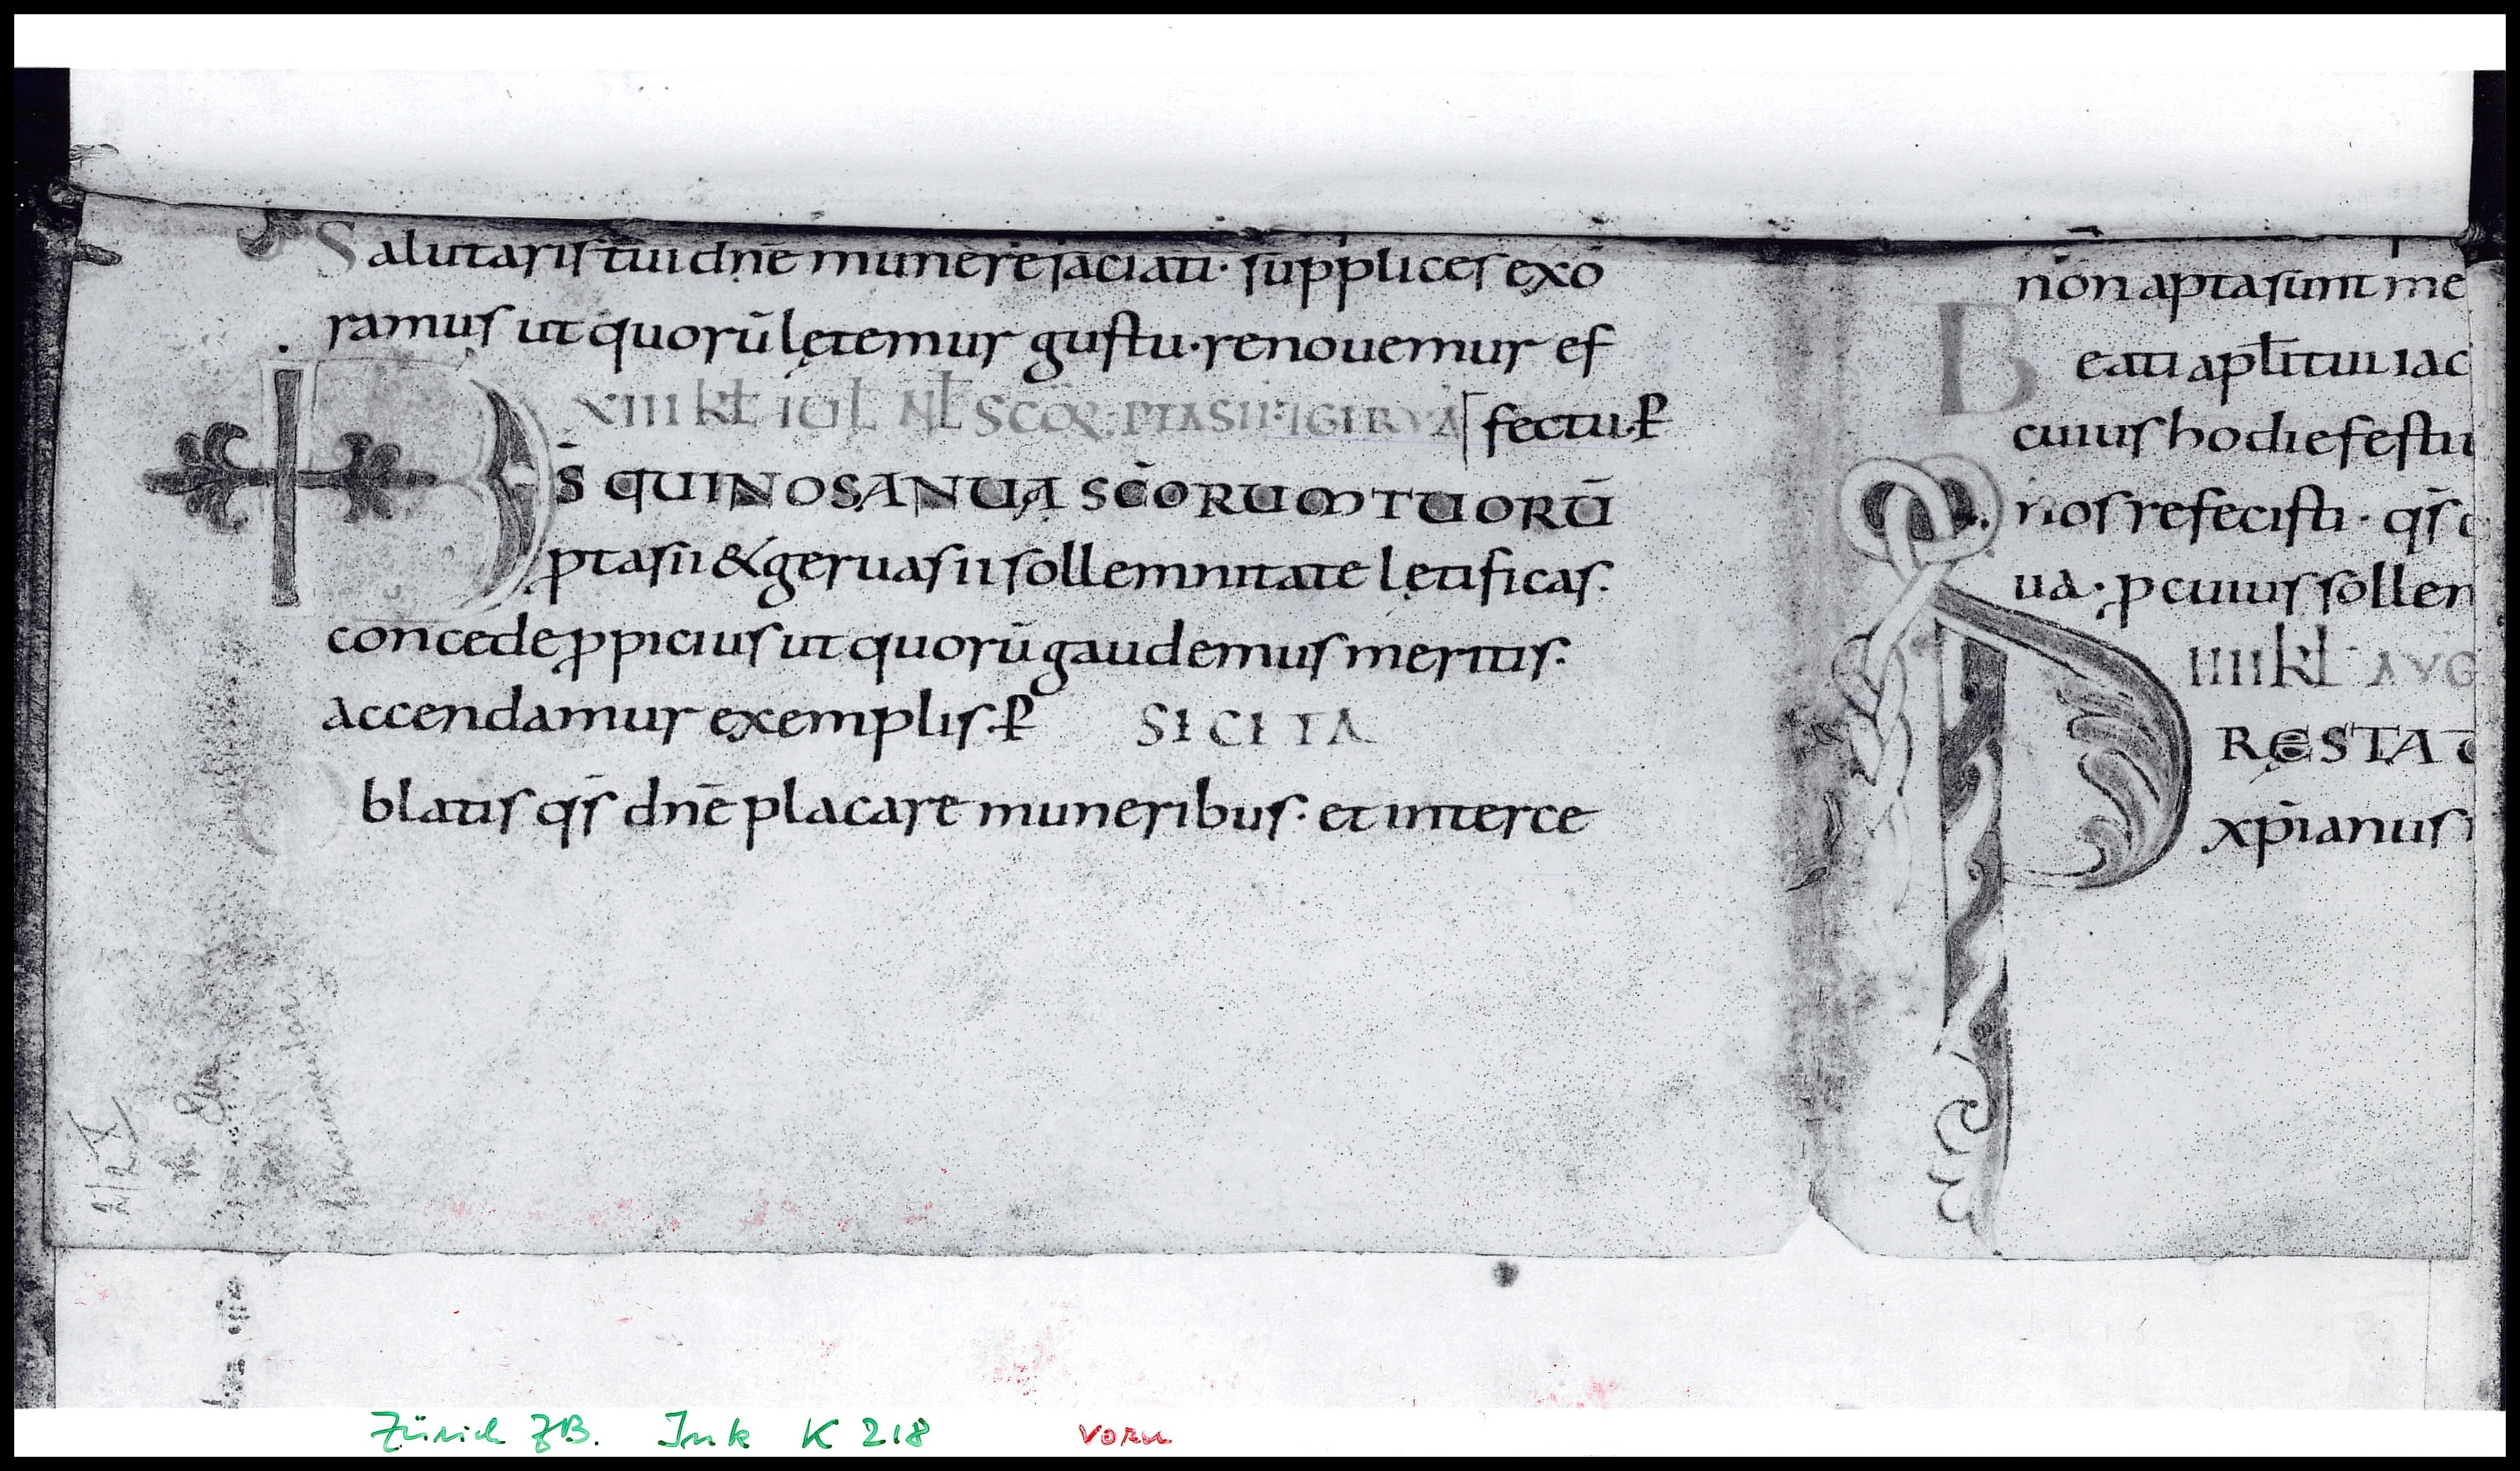 Salutaris tui dnē munere saciati· supplices exo
ramus ut quorū lętemur gustu· renouemur ef
XIII kł IUL NŁ SCOR: PTASII: IGERVA fectu· ꝑ
D̄S QUI NOS ANUA SC̄ORUM TUORŪ
ꝓtasii & geruasii sollemnitate lętificas.
concede ꝓpicius ut quorū gaudemus meritis·
accendamur exemplis· ꝑ SECRETA
Oblatis qs̄ dnē placare muneribus· et interce
non apta sunt me
Beati apłi tui iac
cuius hodie festiu
nos refecisti· qs̄
ua· ꝑ cuius sollem
IIII kł AUG
PRESTA
xp̄ianus
Zürich ZB. Ink K 218 vorn